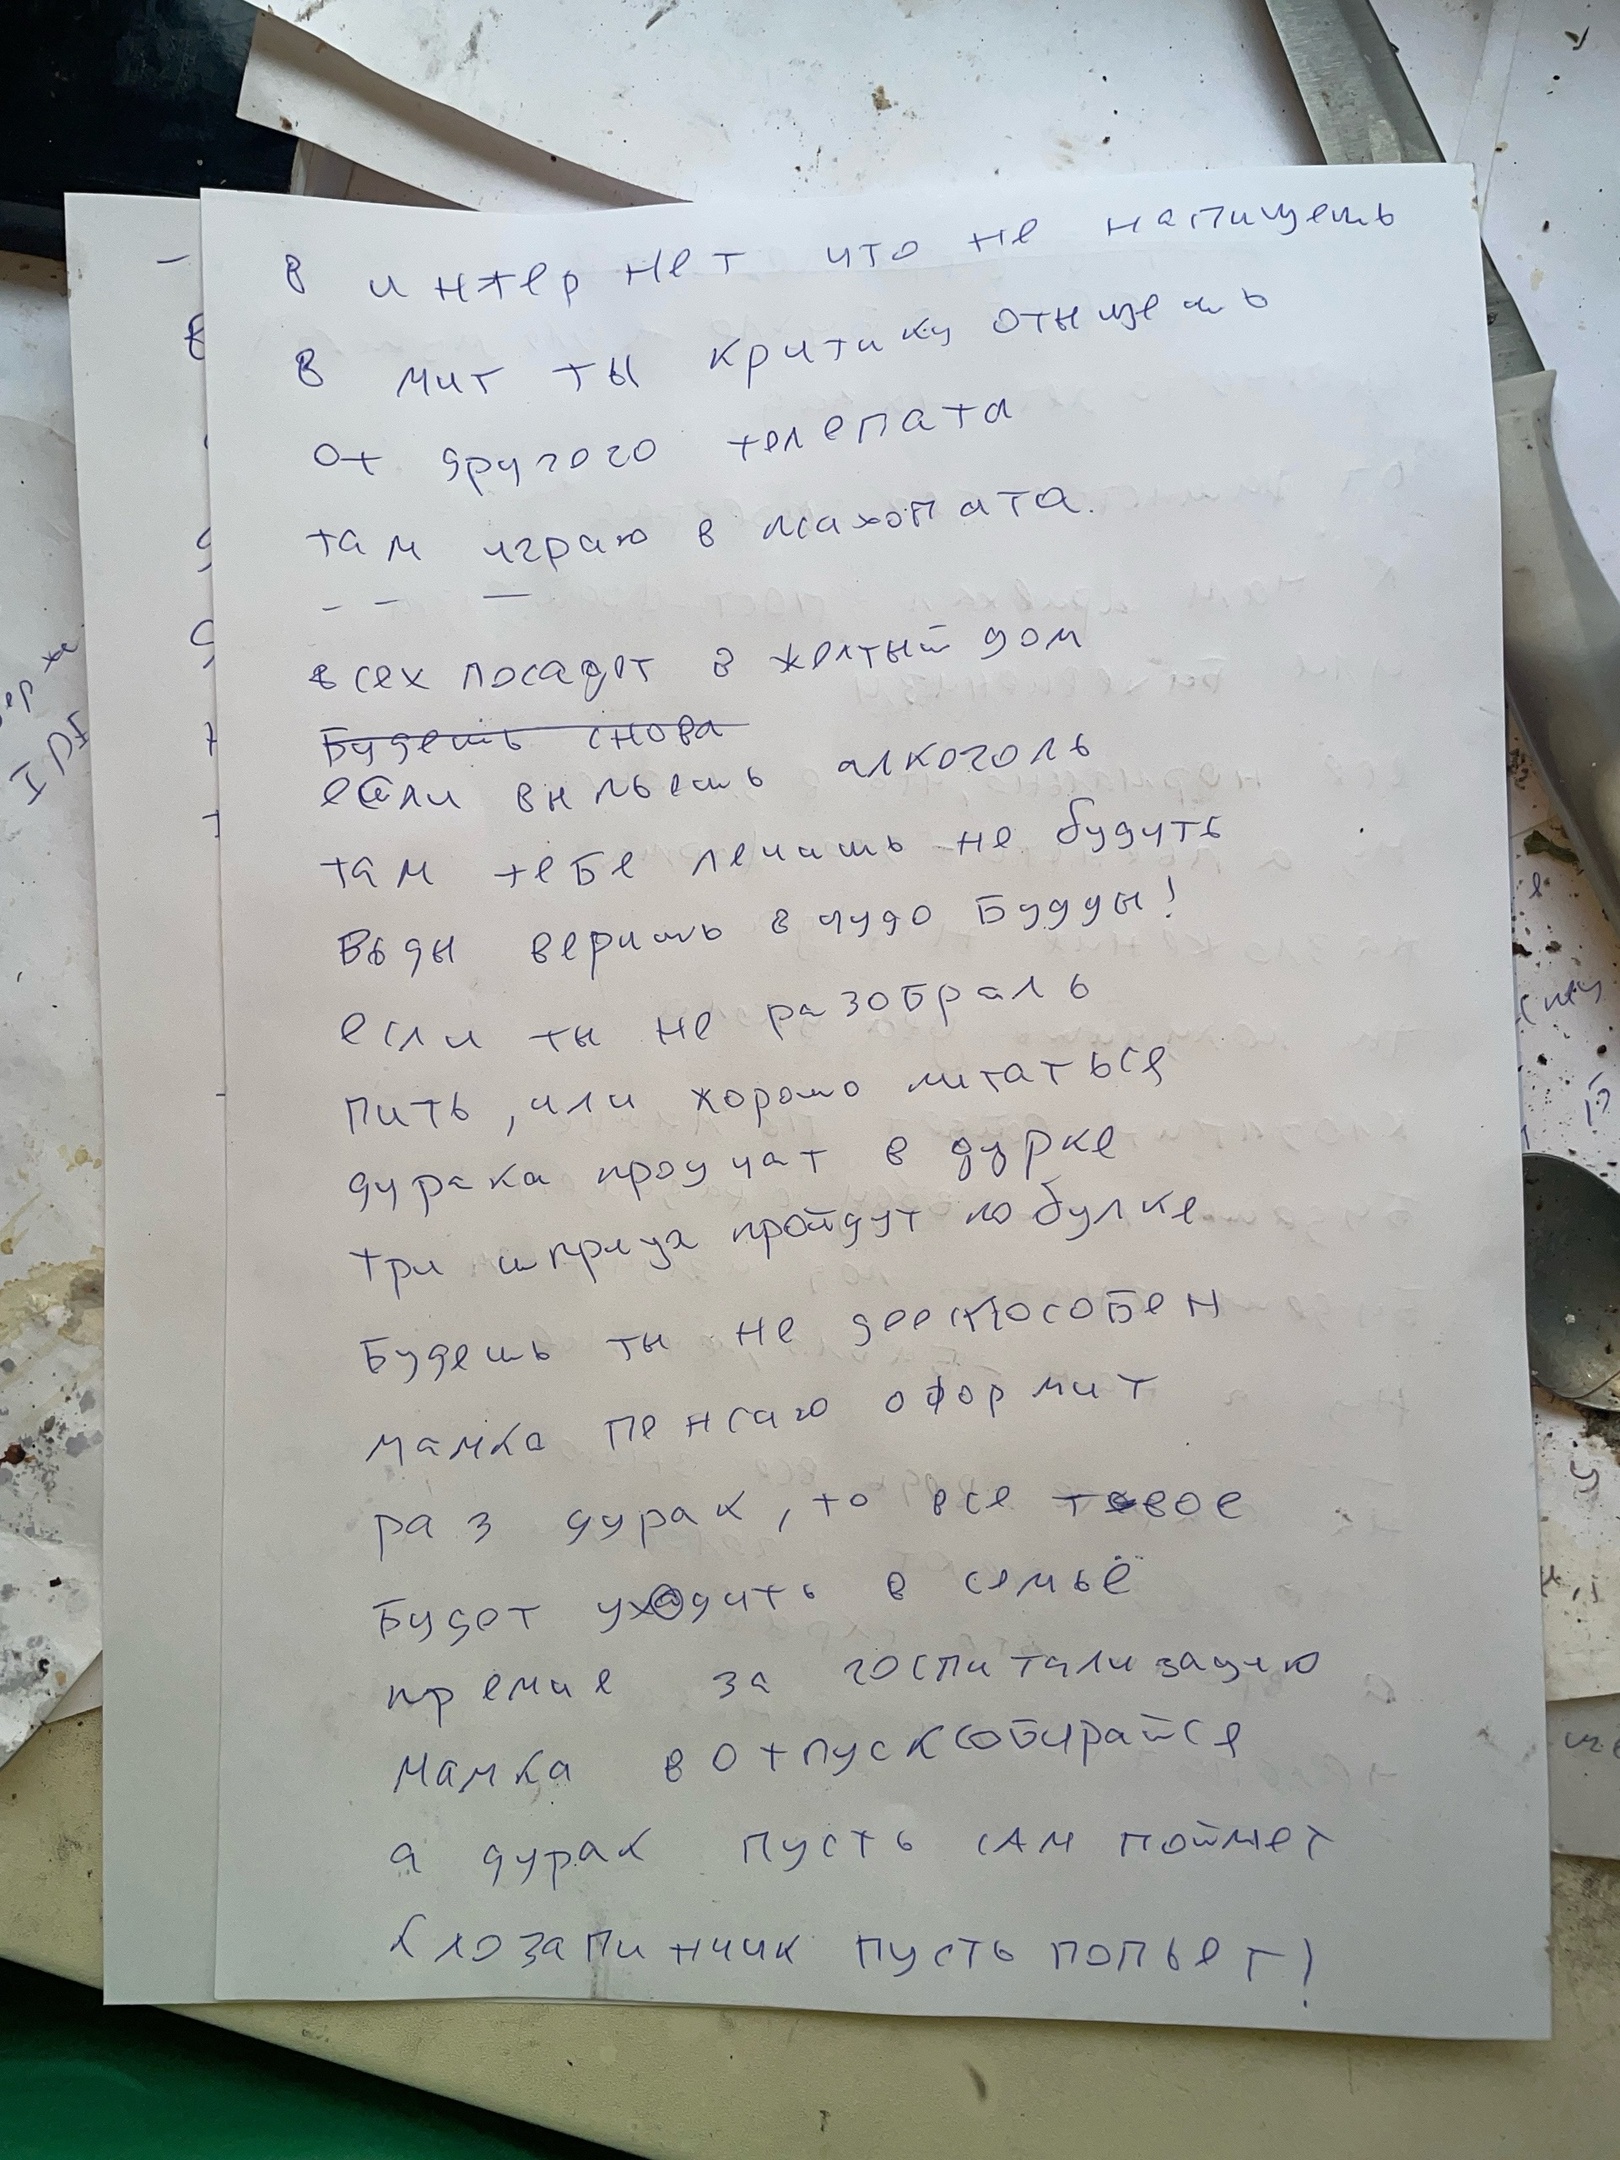 в интернет что не напишешь
в миг ты критику отыщешь
от другого телепата
там играю в психопата.
- - —
всех посадет в желтый дом
Будешь снова
если выпьешь алкоголь
там тебе лечишь не будуть
Веды веришь в чудо Будды!
если ты не разобраль
пить, или хорошо питаться
дурака проучат в дурке
три шприца пройдут по булке
Будешь ты не дееспособен
мамка пенсаю оформит
раз дурак, то все твое
Будет уходить в семьё
премие за госпитализацию
мамка в отпуск собирайся
а дурак пусть сам поймет
клозапинчик пусть попьет!